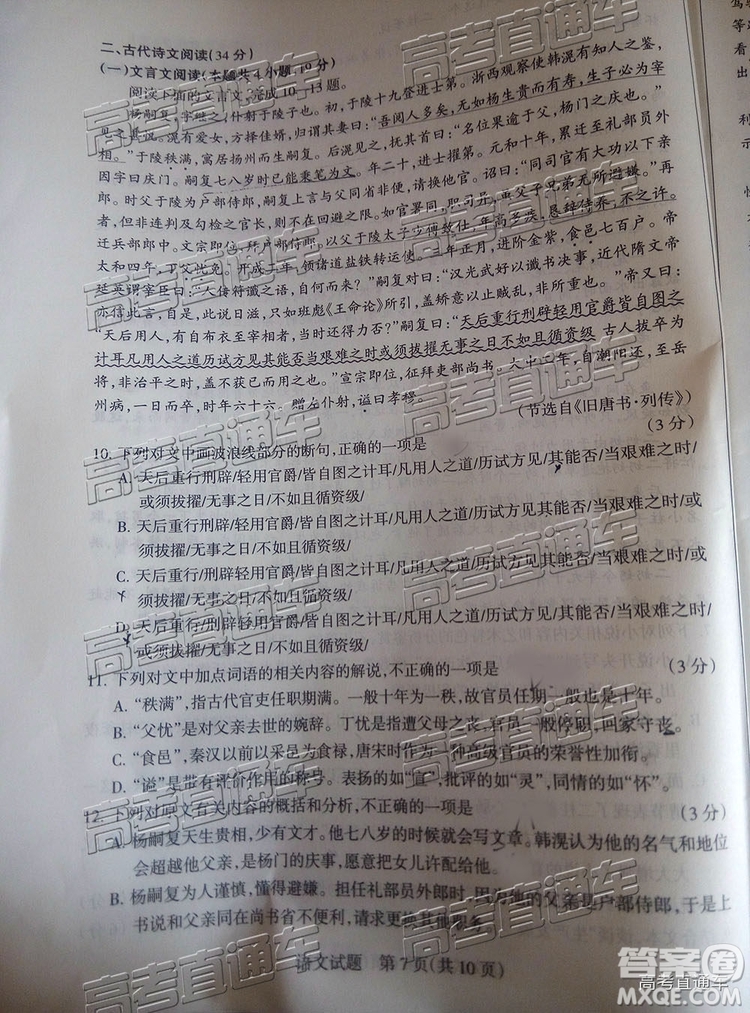 二、古代诗文阅读(34分)
(一)文言文阅读(本题共4小题,19分)
阅读下面的文言文,完成10—13题。
杨嗣复,字继之,仆射于陵子也。初,于陵十九登进士第。浙西观察使韩滉有知人之鉴,
见之甚悦。滉有爱女,方择佳婿,归谓其妻曰:“吾阅人多矣,无如杨生贵而有寿,生子必为宰
相。”于陵秩满,寓居扬州而生嗣复。后滉见之,抚其首曰:“名位果逾于父,杨门之庆也。”
因字曰庆门。嗣复七八岁时已能秉笔为文。年二十,进士擢第。元和十年,累迁至礼部员外
郎。时父于陵为户部侍郎,嗣复上言与父同省非便,请换他官。诏曰:“同司官有大功以下亲
者,但非连判及勾检之官长,则不在回避之限。如官署同,职司异,虽父子兄弟无所避嫌。”再
迁兵部郎中。文宗即位,拜户部侍郎。以父于陵太子少傅致仕,年高多疾,恳辞侍养,不之许。
太和四年,丁父忧免。开成二年,领诸道盐铁转运使。三年正月,进阶金紫,食邑七百户。帝
延英谓宰臣曰:“人传符谶之语,自何而来?”嗣复对曰:“汉光武好以谶书决事,近代隋文帝
亦信此言,自此,此说日滋,只如班彪《王命论》所引,盖矫意以止贼乱,非所重也。”帝又曰:
“天后用人,有自布衣至宰相者,当时还得力否?”嗣复曰:“天后重行刑辟轻用官爵皆自图之
计耳凡用人之道历试方见其能否当艰难之时或须拔擢无事之日不如且循资级 古人拔卒为
将,非治平之时,盖不获已而用之。”宣宗即位,征拜吏部尚书。大中二年,自潮阳还,至岳
州病,一日而卒,时年六十六。赠左仆射,谥曰孝穆。
(节选自《旧唐书·列传》)
10. 下列对文中画波浪线部分的断句,正确的一项是
(3分)
A. 天后重行刑辟/轻用官爵/皆自图之计耳/凡用人之道/历试方见/其能否/当艰难之时/
或须拔擢/无事之日/不如且循资级/
B. 天后重行刑辟/轻用官爵/皆自图之计耳/凡用人之道/历试方见其能否/当艰难之时/或
须拔擢/无事之日/不如且循资级/
C. 天后重行/刑辟轻用官爵/皆自图之计耳/凡用人之道/历试方见其能否/当艰难之时/或
须拔擢/无事之日/不如且循资级/
D. 天后重行/刑辟轻用官爵/皆自图之计耳/凡用人之道/历试方见/其能否/当艰难之时/
或须拔擢/无事之日/不如且循资级/
11. 下列对文中加点词语的相关内容的解说,不正确的一项是
(3分)
A. “秩满”,指古代官吏任职期满。一般十年为一秩,故官员任期一般是十年。
B. “父忧”是对父亲去世的婉辞。丁忧是指遭父母之丧,官员一般停职,回家守丧。
C. “食邑”,秦汉以前以采邑为食禄,唐宋时作为一种高级官员的荣誉性加衔。
D. “谥”是带有评价作用的称号。表扬的如“宣”,批评的如“灵”,同情的如“怀”。
12. 下列对原文有关内容的概括和分析,不正确的一项是
(3分)
A. 杨嗣复天生贵相,少有文才。他七八岁的时候就会写文章。韩滉认为他的名气和地位
会超越他父亲,是杨门的庆事,愿意把女儿许配给他。
B. 杨嗣复为人谨慎,懂得避嫌。担任礼部员外郎时,因为他的父亲是户部侍郎,于是上
书说和父亲同在尚书省不便利,请求更换其他职务。
语文试题 第7页(共10页)
高考直通车
答案圈
高考直通车
MXQE.COM